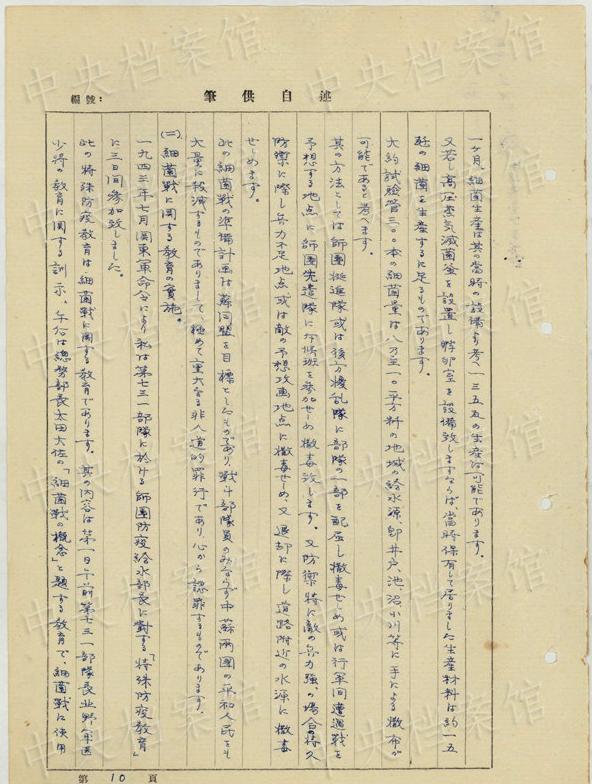 筆供自述
編號:
一ヶ月、細菌生産は其の當時の設備より考へ一三五瓦の生産は可能であります。
又若し高圧蒸気滅菌釜を設置し孵卵室を設備致しますならば、當時保有して居りました生産材料は約一五
瓩の細菌を生産するに足るものであります。
大約試験管三〇〇本の細菌量は八乃至一〇平方粁の地域の給水源、即井戸、池、沼、小川等に手による撒布が
可能であると考へます。
其の方法としては師團挺進隊或は後方擾乱隊に部隊の一部を配属し撒毒せしめ或は行軍間遭遇戦を
予想する地点に師團先遣隊に斥候班を参加せしめ撒毒致します。又防禦特に敵の兵力強い場合の持久
防禦に際し兵力不足地点、或は敵の予想攻画地点に撒毒せしめ、又退却に際し道路附近の水源に撒毒
せしめます。
此の細菌戦の準備計画は蘇同盟を目標としたものであり、戦斗部隊員のみならず中蘇両國の平和人民をも
大量に殺滅するものでありまして極めて重大なる非人道的罪行であり、心から認罪するものであります。
(二) 細菌戦に関する教育の実施。
一九四三年七月関東軍命令により私は第七三一部隊に於ける師團防疫給水部長に對する「特殊防疫教育」
に三日間参加致しました。
此の特殊防疫教育は、細菌戦に関する教育であります。其の内容は第一日午前第七三一部隊長北野軍医
少将の教育に関する訓示、午后は總務部長太田大佐の「細菌戦の概念」と題する教育で、細菌戦に使用
第 10 頁
中央档案馆